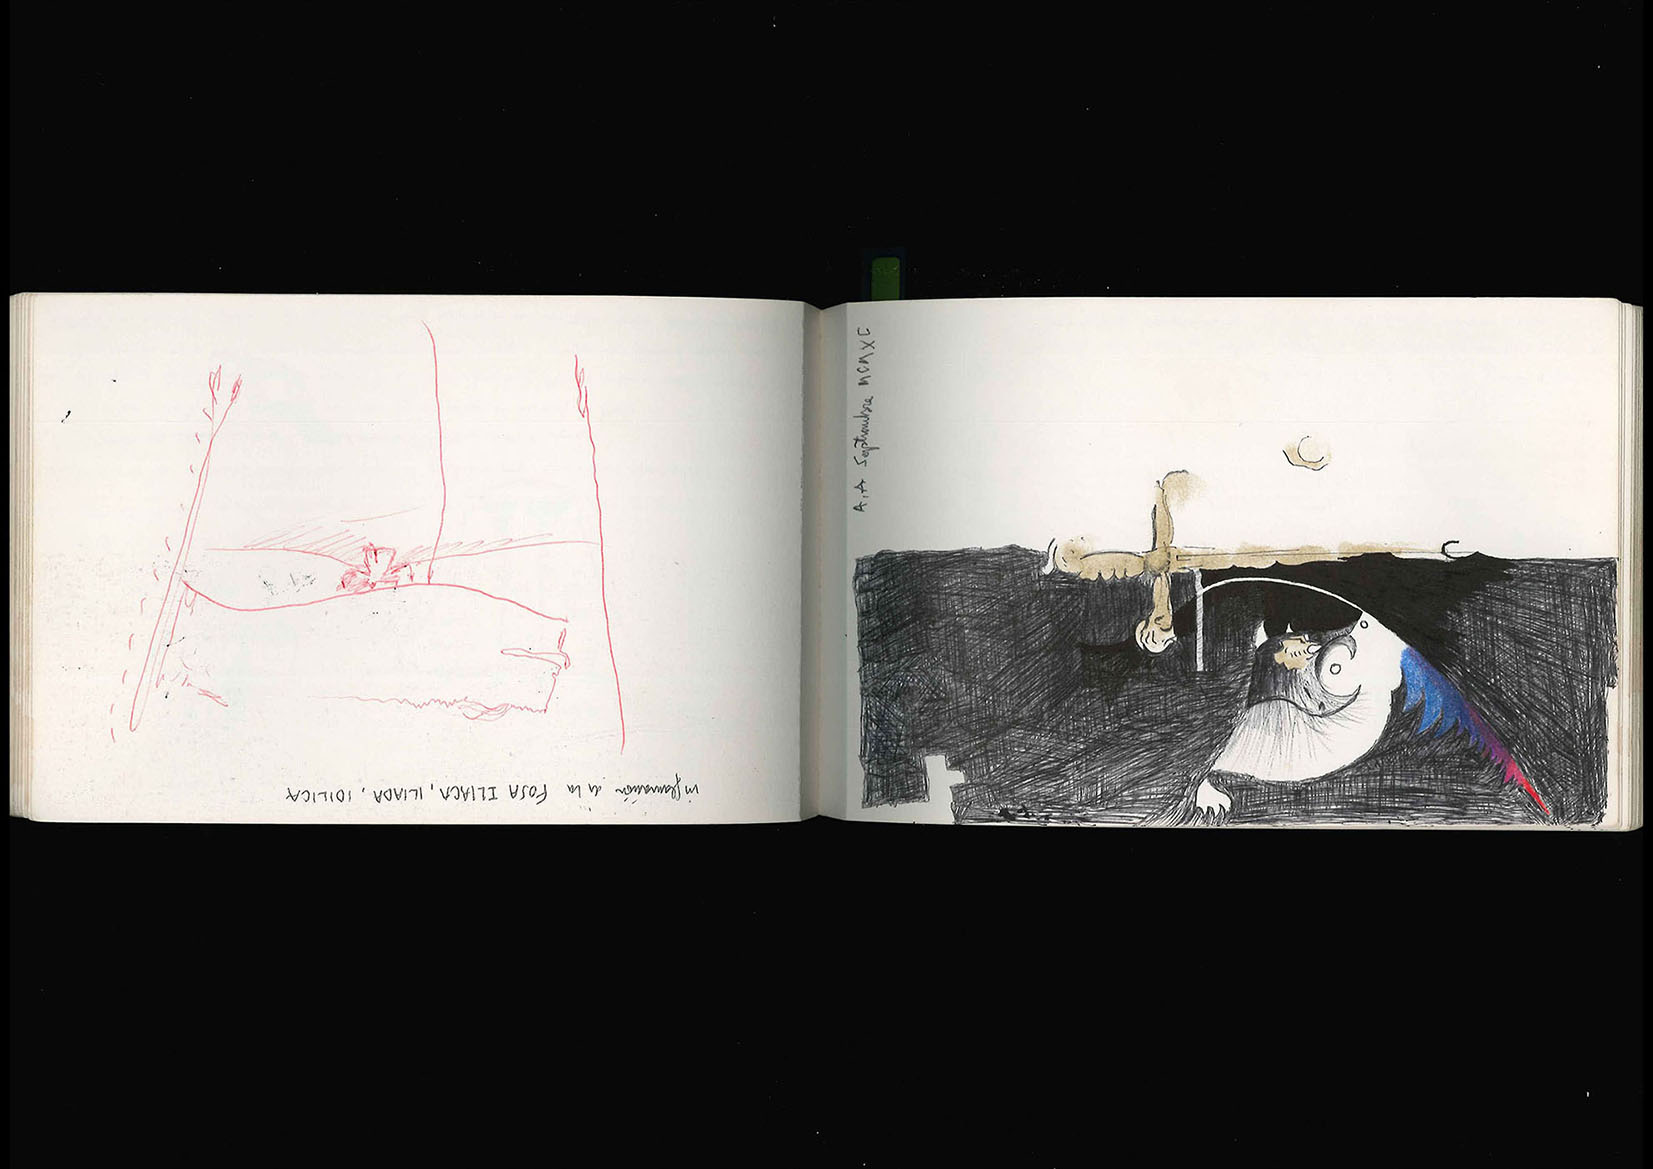 inflamación de la FOSA ILIACA, ILIADA, IDILICA
A.A Septiembre MCMXC